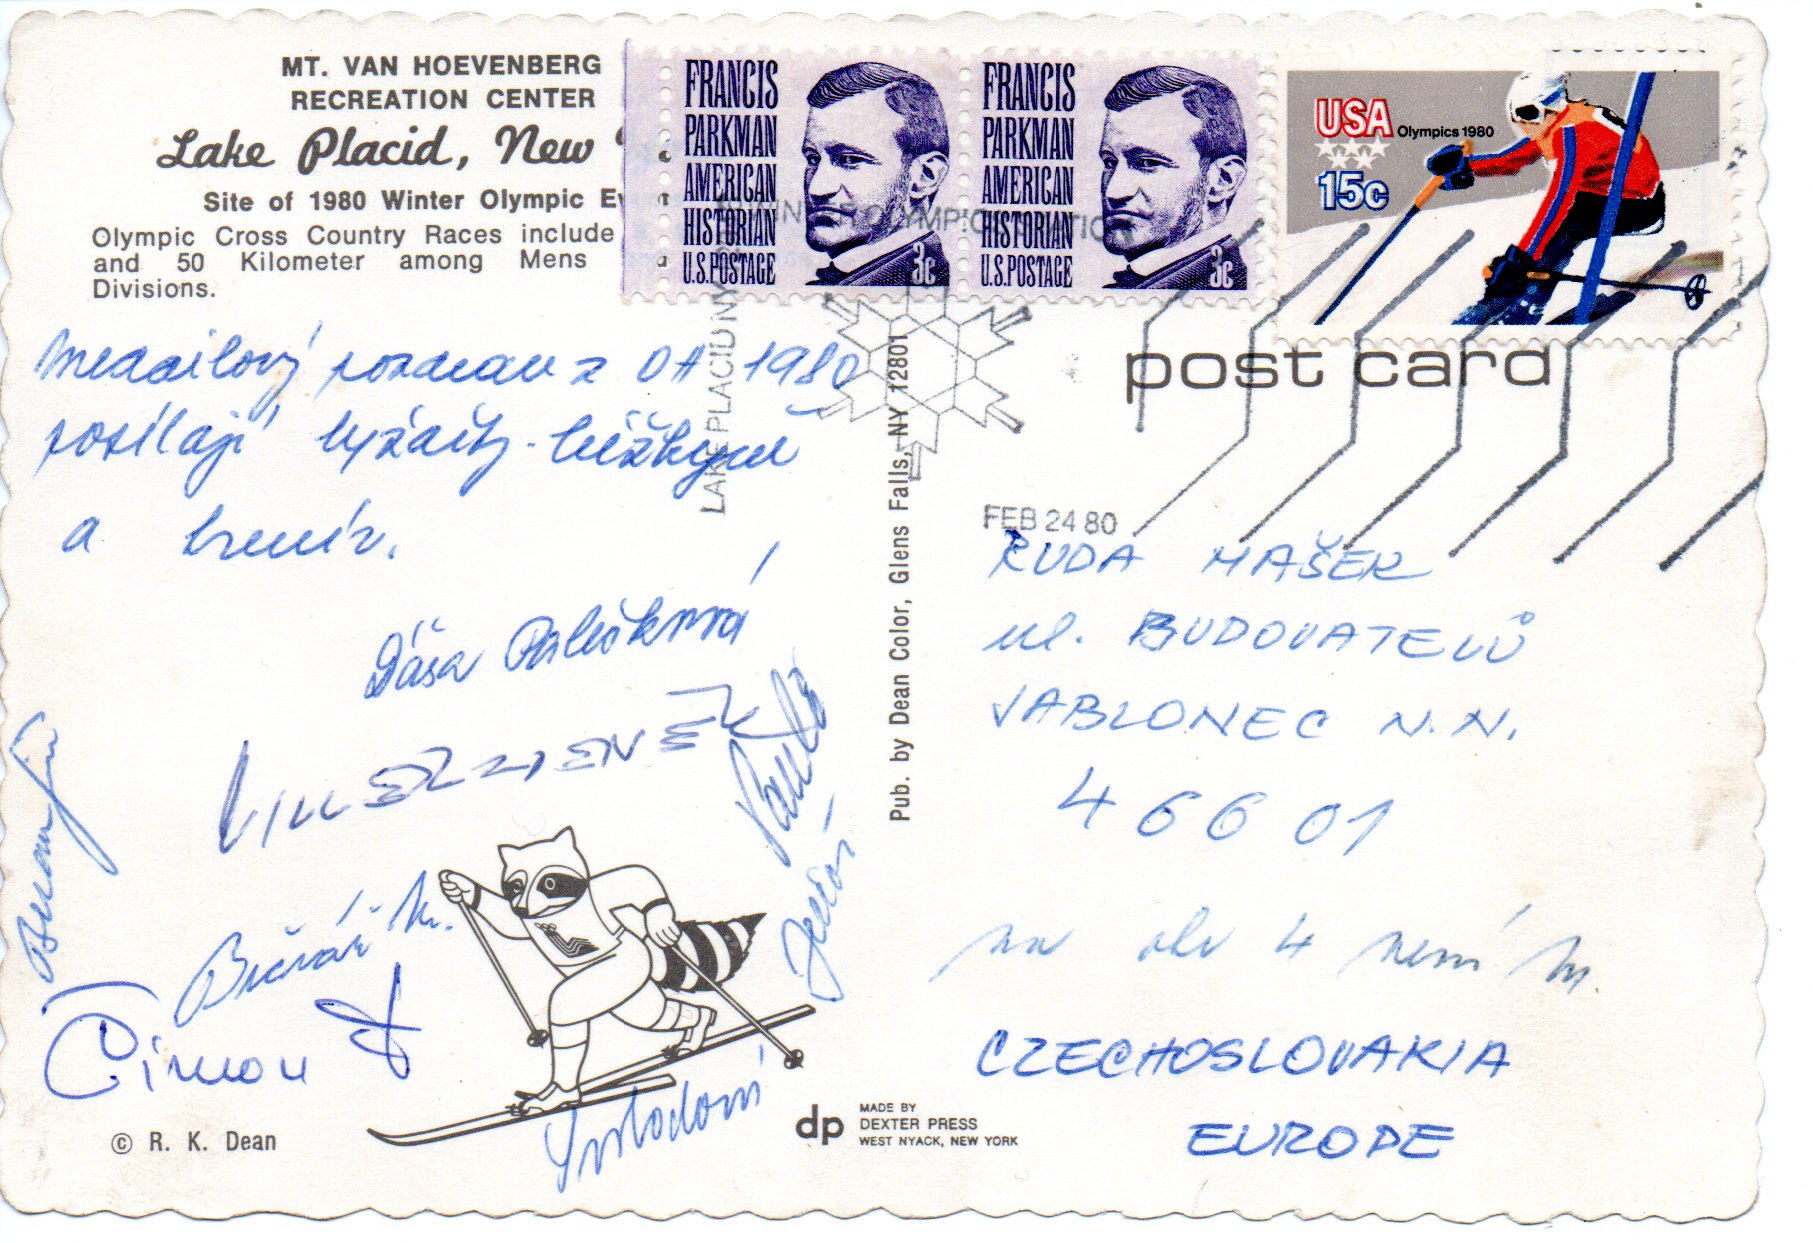 MT. VAN HOEVENBERG
RECREATION CENTER
Lake Placid, New
Site of 1980 Winter Olympic
Olympic Cross Country Races include
and 50 Kilometer among Mens
Divisions.
FRANCIS
PARKMAN
AMERICAN
HISTORIAN
U.S. POSTAGE
3c
FRANCIS
PARKMAN
AMERICAN
HISTORIAN
U.S. POSTAGE
3c
USA Olympics 1980
15c
LAKE PLACID NY
post card
FEB 24 80
Medailový pozdrav z OH 1980
posílají lyžařky-běžkyně
a trenér.
Dáša Palečková
Pub. by Dean Color, Glens Falls, NY 12801
RUDA MAŠEK
ul. BUDOVATELŮ
JABLONEC N.N.
466 01
na 4 není m.
CZECHOSLOVAKIA
EUROPE
Svobodová
© R. K. Dean
dp MADE BY
DEXTER PRESS
WEST NYACK, NEW YORK